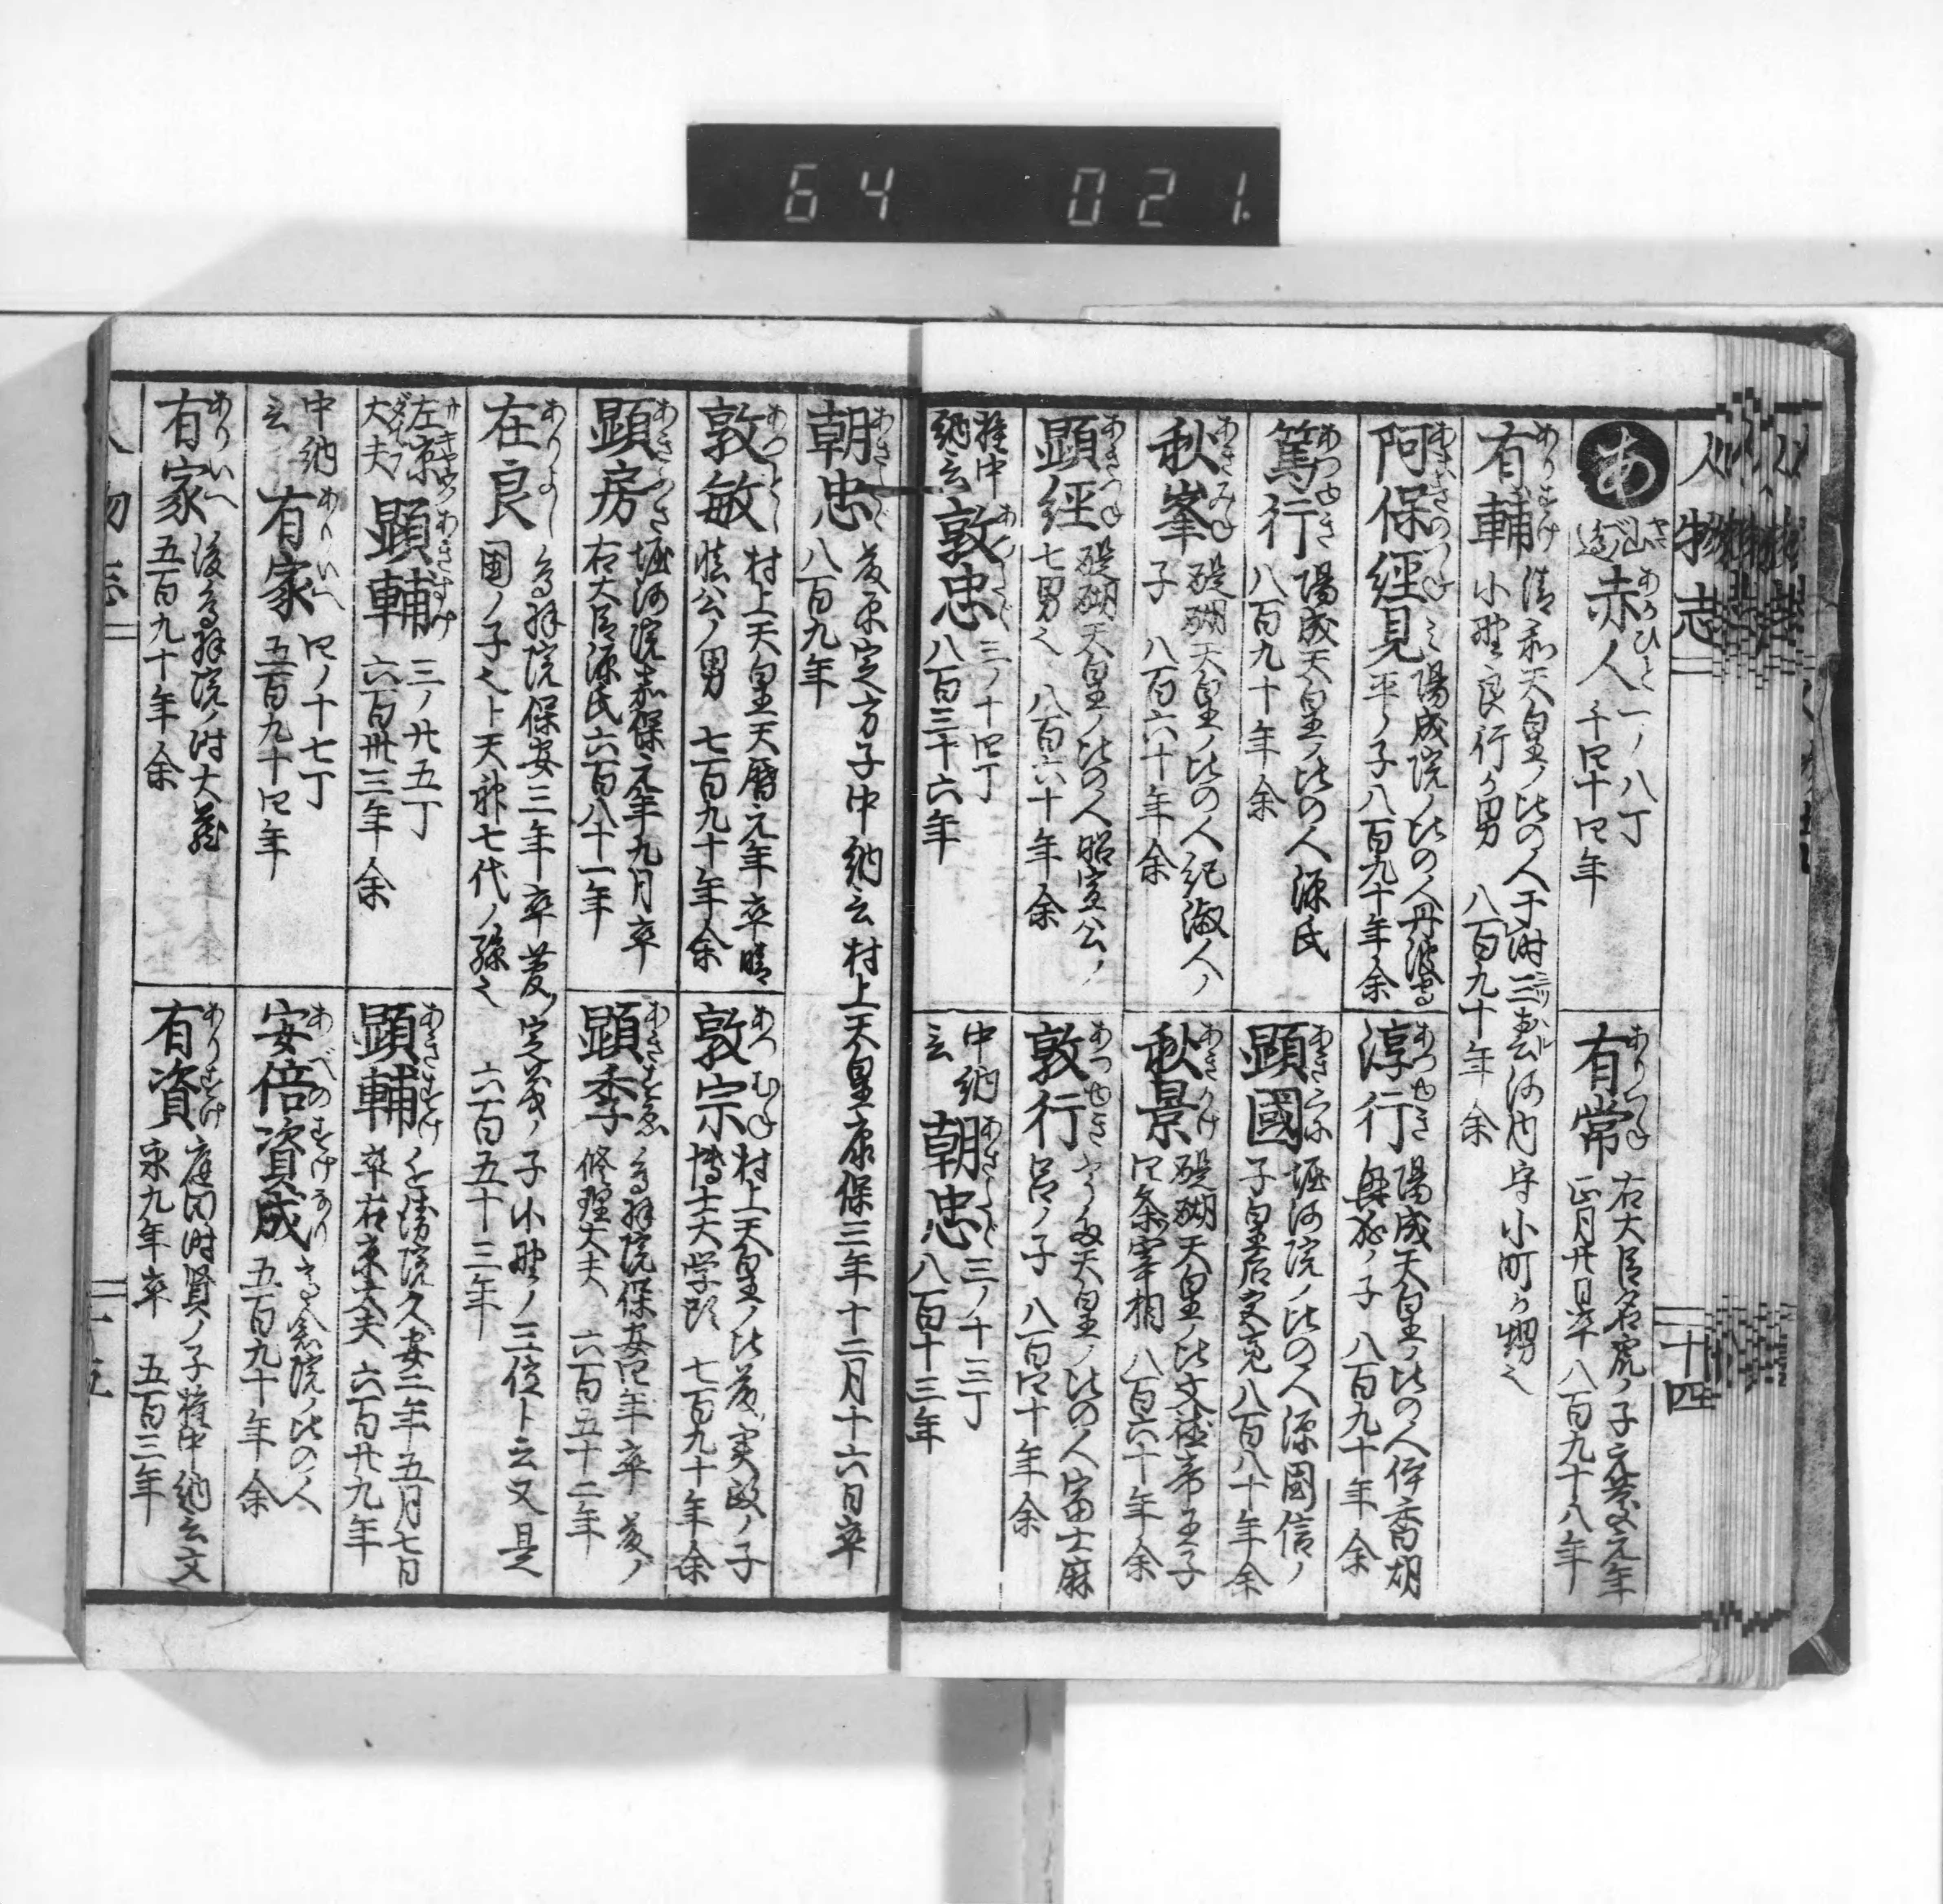 64 021
人物志
十四
あ
山邊赤人 一ノ八丁
千四十四年
有常 右大臣名虎ノ子元慶元年
正月廿日卒 八百九十八年
有輔 清和天皇ノ比の人
小野良行ノ男 八百九十年余
阿保經見 陽成院ノ比の人丹波守
平ノ子八百九十年余
淳行 陽成天皇ノ比の人伊香胡
ノ子 八百九十年余
篤行 陽成天皇ノ比の人 源氏
八百九十年余
顕國 堀河院ノ比の人源國信ノ
八百八十年余
秋峯 醍醐天皇ノ比の人紀淑人ノ
子 八百六十年余
秋景 醍醐天皇ノ比文徳帝王子
四条宰相 八百六十年余
顕經 醍醐天皇ノ比の人昭宣公ノ
七男也 八百六十年余
敦行 天皇ノ比の人富士麻
呂ノ子 八百四十年余
權中納言 敦忠 三ノ十四丁
八百三十六年
中納言 朝忠 三ノ十三丁
八百十三年
朝忠 藤原定方子中納言村上天皇康保三年十二月十六日卒
八百九年
敦敏 村上天皇天暦元年卒清
慎公ノ男 七百九十年余
敦宗 村上天皇ノ比藤実政ノ子
博士大学頭 七百九十年余
顕房 堀河院嘉保元年九月卒
右大臣源氏六百八十一年
顕季 鳥羽院保安四年卒 藤ノ
修理大夫 六百五十二年
在良 鳥羽院保安三年卒 菅ノ定義ノ子小野ノ三位ト云又是
国ノ子也ト天神七代ノ孫也 六百五十三年
左京大夫 顕輔 三ノ廿五丁
六百卅三年余
顕輔 近衛院久安二年五月七日
卒右京大夫 六百廿九年
中納言 有家 四ノ十七丁
五百九十四年
安倍資成 院ノ比の人
五百九十年余
有家 後鳥羽院ノ時大蔵
五百九十年余
有資 時賢ノ子權中納言文
永九年卒 五百三年
人物志
十五